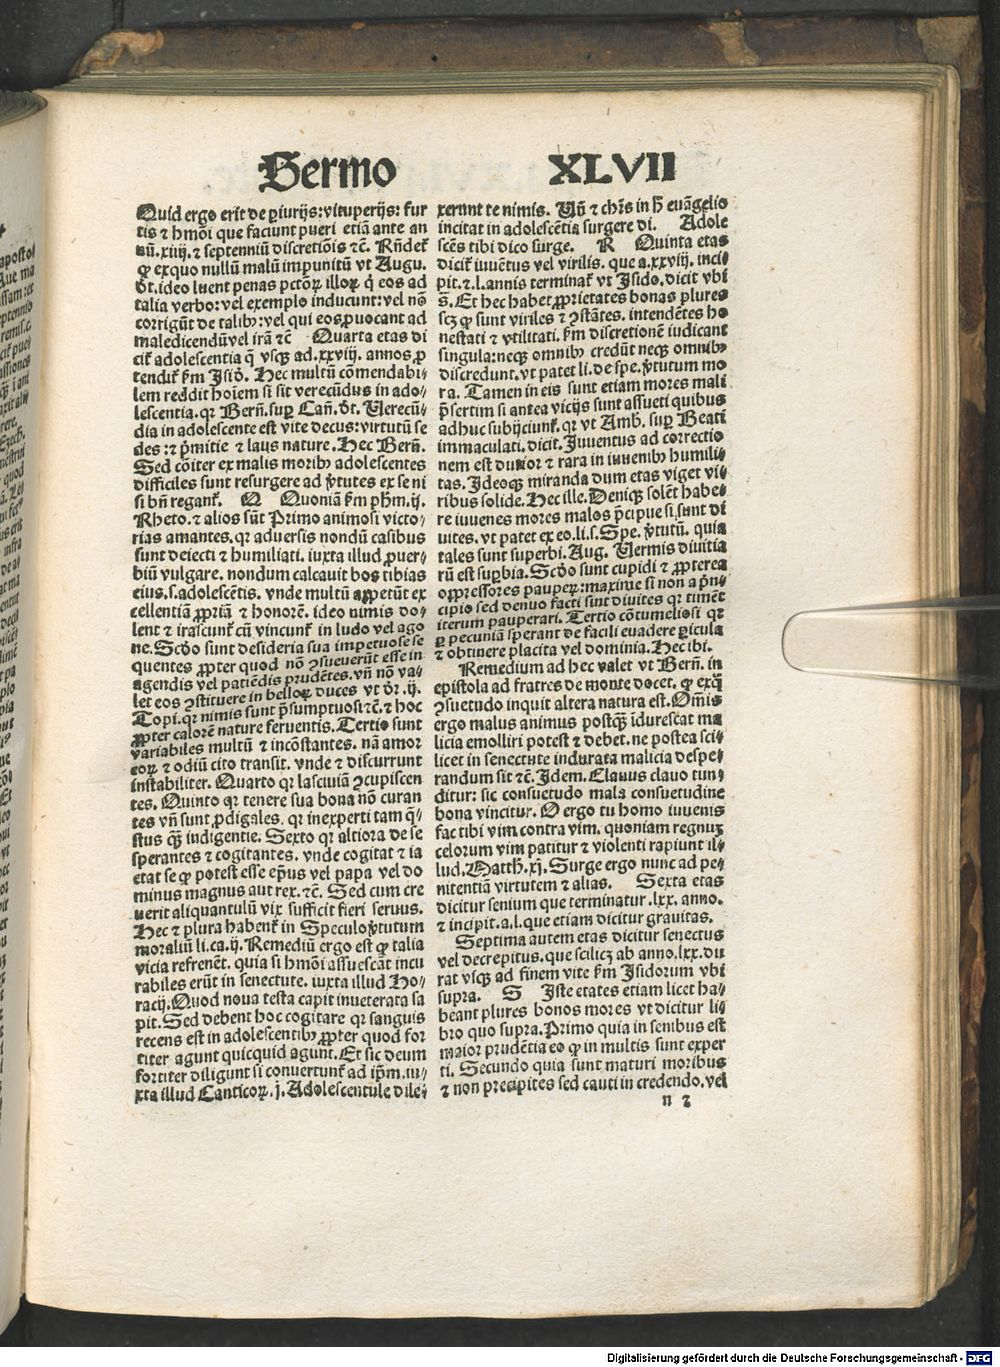 Sermo XLVII
Quid ergo erit de ꝑiurijs: vituperijs: fur
tis ⁊ hm̄oi que faciunt pueri etiā ante an
nū. xiiij. ⁊ septenniū discretiōis ⁊c̄. Rn̄deť
ꝙ exquo nullū malū impunitū vt Augu.
d̄t. ideo luent penas pctōꝝ illoꝝ q̇ eos ad
talia verbo: vel exemplo inducunt: vel nō
corrigūt de talibꝫ: vel qui eos ꝓuocant ad
maledicendū vel irā ⁊c̄ Quarta etas di
ciť adolescentia q̄ vsqꝫ ad. xxviij. annos ꝓ
tendiť ẜm Jsid̄. Hec multū cōmendabi⸗
lem reddit hoīem si sit verecūdus in ado⸗
lescentia. qꝛ Bern̄. suꝑ Can̄. d̄t. Verecū⸗
dia in adolescente est vite decus: virtutū se
des: ⁊ p̄mitie ⁊ laus nature. Hec Bern̄.
Sed cōiter ex malis moribꝫ adolescentes
difficiles sunt resurgere ad ꝟtutes ex se ni
si bn̄ reganť. Q Quoniā ẜm phm̄. ij.
Rheto. ⁊ alios sūt Primo animosi victo⸗
rias amantes. qꝛ aduersis nondū casibus
sunt deiecti ⁊ humiliati. iuxta illud ꝓuer⸗
biū vulgare. nondum calcauit bos tibias
eius. s. adolescētis. vnde multū appetūt ex
cellentiā ꝓpriā ⁊ honorē. ideo nimis do⸗
lent ⁊ irascunť cū vincunť in ludo vel ago
ne. Scd̄o sunt desideria sua impetuose se
quentes ꝓpter quod nō ꝯsueuerūt esse in
agendis vel patiēdis prudētes. vn̄ nō va⸗
let eos ꝯstituere in belloꝝ duces vt d̄r. ij.
Topi. qꝛ nimis sunt p̄sumptuosi ⁊c̄. ⁊ hoc
ꝓpter calorē nature feruentis. Tertio sunt
variabiles multū ⁊ incōstantes. nā amor
eoꝝ ⁊ odiū cito transit. vnde ⁊ discurrunt
instabiliter. Quarto qꝛ lasciuiā ꝯcupiscen
tes. Quinto qꝛ tenere sua bona nō curan
tes vn̄ sunt ꝓdigales. qꝛ inexperti tam q̄⸗
stus q̄ꝫ indigentie. Sexto qꝛ altiora de se
sperantes ⁊ cogitantes. vnde cogitat ⁊ ia
ctat se ꝙ potest esse ep̄us vel papa vel do
minus magnus aut rex. ⁊c̄. Sed cum cre
uerit aliquantulū vix sufficit fieri seruus.
Hec ⁊ plura habenť in Speculo ꝟtutum
moraliū li. ca. ij. Remediū ergo est ꝙ talia
vicia refrenēt. quia si hm̄oi assuescāt incu
rabiles erūt in senectute. iuxta illud Ho⸗
racij. Quod noua testa capit inueterata sa
pit. Sed debent hoc cogitare qꝛ sanguis
recens est in adolescentibꝫ ꝓpter quod for
titer agunt quicquid agunt. Et sic deum
fortiter diligunt si conuertunť ad ip̄m. iu⸗
xta illud Canticoꝝ. j. Adolescentule dile⸗
xerunt te nimis. Vn̄ ⁊ chr̄s in h̄ euāgelio
incitat in adolescētia surgere di. Adole
scēs tibi dico surge. R Quinta etas
diciť iuuētus vel virilis. que a. xxviij. inci
pit. ⁊. l. annis terminať vt Jsido. dicit vbi
s̄. Et hec habet ꝓprietates bonas plures
scꝫ ꝙ sunt viriles ⁊ ꝯstātes. intendētes ho
nestati ⁊ vtilitati. ẜm discretionē iudicant
singula: necqꝫ omnibꝫ credūt necqꝫ omnibꝫ
discredunt. vt patet li. de spe. ꝟtutum mo
ra. Tamen in eis sunt etiam mores mali
p̄sertim si antea vicijs sunt assueti quibus
adhuc subijciunť. qꝛ vt Amb. suꝑ Beati
immaculati. dicit. Juuentus ad correctio
nem est durior ⁊ rara in iuuenibꝫ humili⸗
tas. Jdeoqꝫ miranda dum etas viget vi⸗
ribus solide. Hec ille. Deniqꝫ solēt habe⸗
re iuuenes mores malos p̄cipue si sunt di
uites. vt patet ex eo. li. s. Spe. ꝟtutū. quia
tales sunt superbi. Aug. Vermis diuitia
rū est suꝑbia. Scd̄o sunt cupidi ⁊ ꝓpterea
oppressores pauperꝫ: maxime si non a p̄n⸗
cipio sed denuo facti sint diuites qꝛ timēt
iterum pauperari. Tertio cōtumeliosi qꝛ
ꝑ pecuniā sperant de facili euadere ꝑicula
⁊ obtinere placita vel dominia. Hec ibi.
Remedium ad hec valet vt Bern̄. in
epistola ad fratres de monte docet. ꝙ exq̇
ꝯsuetudo inquit altera natura est. Om̄is
ergo malus animus postqꝫ̄ īdurescat ma
licia emolliri potest ⁊ debet. ne postea sci⸗
licet in senectute indurata malicia despe⸗
randum sit ⁊c̄. Jdem. Clauus clauo tun⸗
ditur: sic consuetudo mala consuetudine
bona vincitur. O ergo tu homo iuuenis
fac tibi vim contra vim. quoniam regnuꝫ
celorum vim patitur ⁊ violenti rapiunt il⸗
lud. Matth. xj. Surge ergo nunc ad pe⸗
nitentiā virtutem ⁊ alias. Sexta etas
dicitur senium que terminatur. lxx. anno.
⁊ incipit. a. l. que etiam dicitur grauitas.
Septima autem etas dicitur senectus
vel decrepitus. que scilicꝫ ab anno. lxx. du
rat vsqꝫ ad finem vite ẜm Jsidorum vbi
supra. S Jste etates etiam licet ha⸗
beant plures bonos mores vt dicitur li⸗
bro quo supra. Primo quia in senibus est
maior prudētia eo ꝙ in multis sunt exper
ti. Secundo quia sunt maturi moribus
⁊ non precipites sed cauti in credendo. vel
n 2
Digitalisierung gefördert durch die Deutsche Forschungsgemeinschaft - DFG